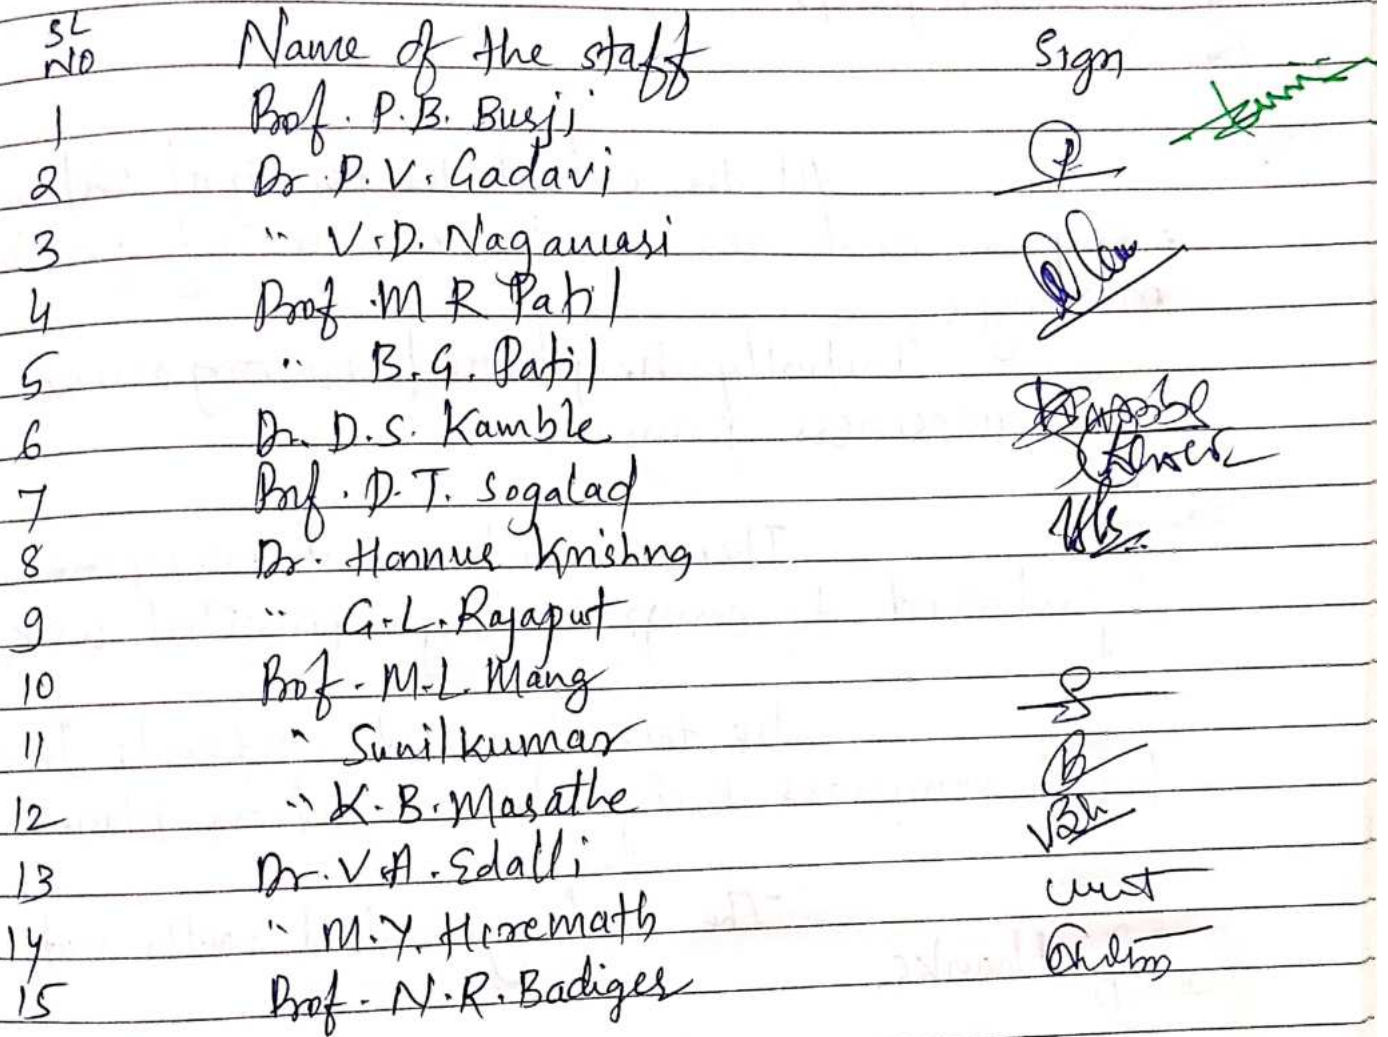 SL NO Name of the staff Sign
1 Prof. P.B. Burji
2 Dr P.V. Gadavi
3 " V.D. Nagamasi
4 Prof. M R Patil
5 " B.G. Patil
6 Dr. D.S. Kamble
7 Prof. D.T. Sogalad
8 Dr. Honnur Krishna
9 " G.L. Rajaput
10 Prof. M.L. Mang
11 " Sunilkumar
12 " K.B. Marathe
13 Dr. V.A. Edalli
14 " M.Y. Hiremath
15 Prof. N.R. Badiger